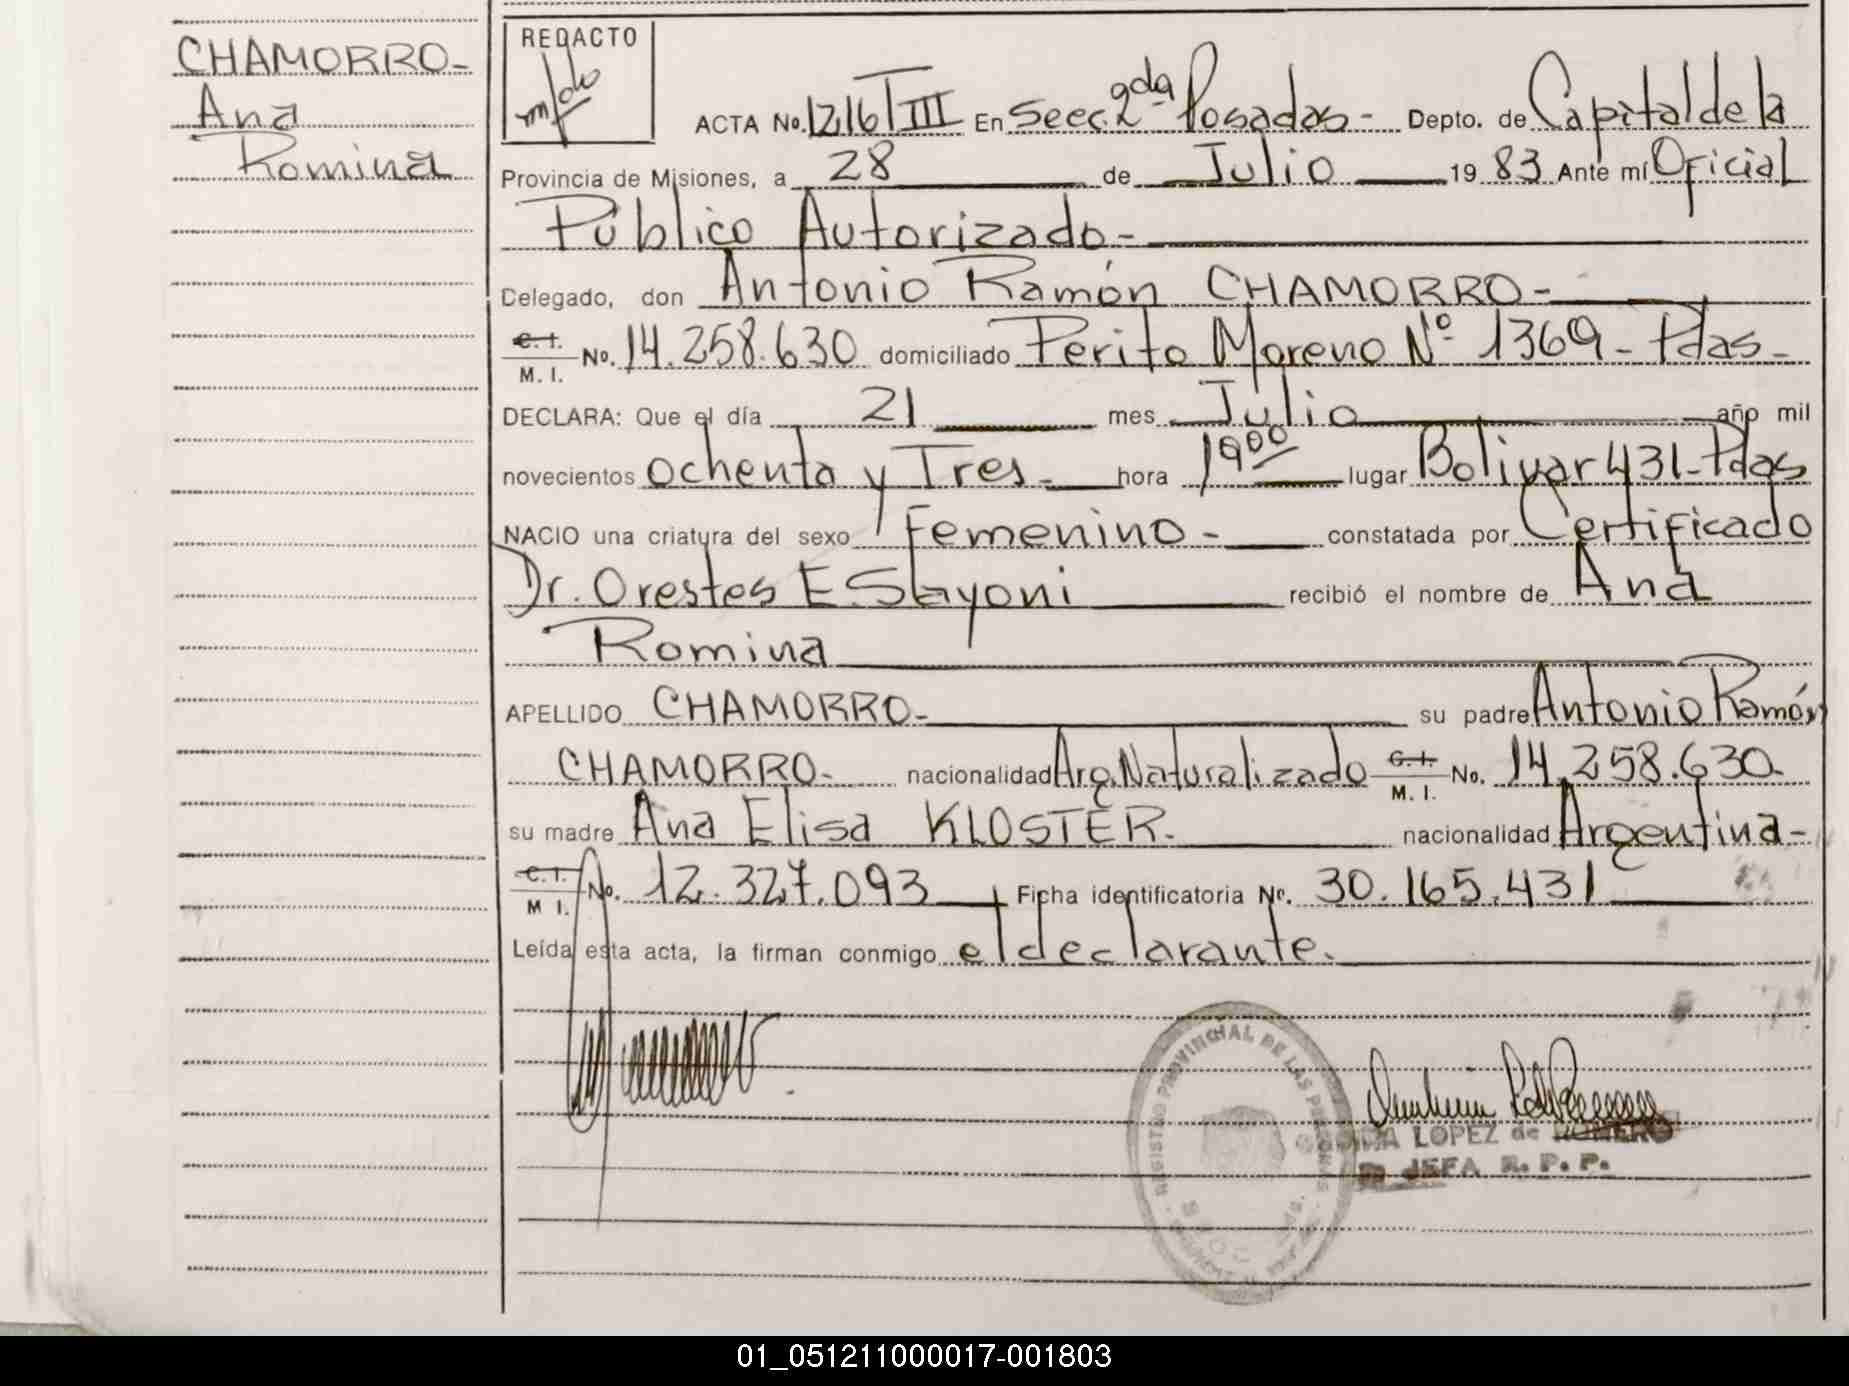 CHAMORRO-
Ana
Romina
REDACTO
ACTA No. 1216 T III En Secc. 2da Posadas- Depto. de Capital de la
Provincia de Misiones, a 28 de Julio 19 83 Ante mí Oficial
Público Autorizado-
Delegado, don Antonio Ramón CHAMORRO-
C.I. M. I. No. 14.258.630 domiciliado Perito Moreno Nº 1369- Pdas-
DECLARA: Que el día 21 mes Julio año mil
novecientos ochenta y Tres- hora 19 00 lugar Bolivar 431-Pdas
NACIO una criatura del sexo Femenino- constatada por Certificado
Dr. Orestes E. recibió el nombre de Ana
Romina
APELLIDO CHAMORRO- su padre Antonio Ramón
CHAMORRO- nacionalidad Arg. Naturalizado C.I. M. I. No. 14.258.630
su madre Ana Elisa KLOSTER- nacionalidad Argentina-
C.I. M I. No. 12.327.093 Ficha identificatoria Nº. 30.165.431
Leída esta acta, la firman conmigo el declarante.
REGISTRO PROVINCIAL DE LAS PERSONAS
LOPEZ de ROMERO
JEFA R. P. P.
01_051211000017-001803